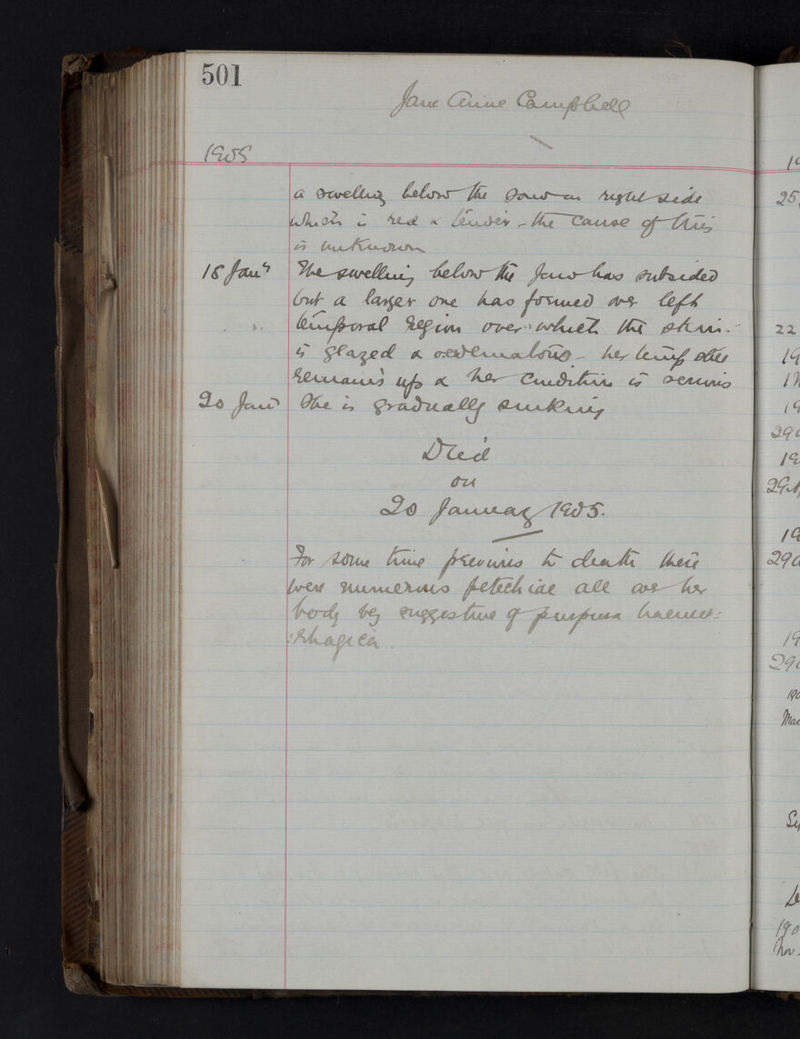 501
Jane Anne Campbell
1905
a swelling below the jaw on right side
which is red & tender - the cause of this
is unknown
18 Jany The swelling below the jaw has subsided
but a larger one has formed over left
temporal region over which the skin
is glazed & oedematous - her temp still
remains up & her condition is serious
20 Jany She is gradually sinking
Died
on
20 January 1905.
For some time previous to death there
were numerous petechiae all over her
body suggestive of purpura haemor:
:rhagica.
25
22
19
19
29
19
29
19
29
19
29
190
Mar
190
Nov.